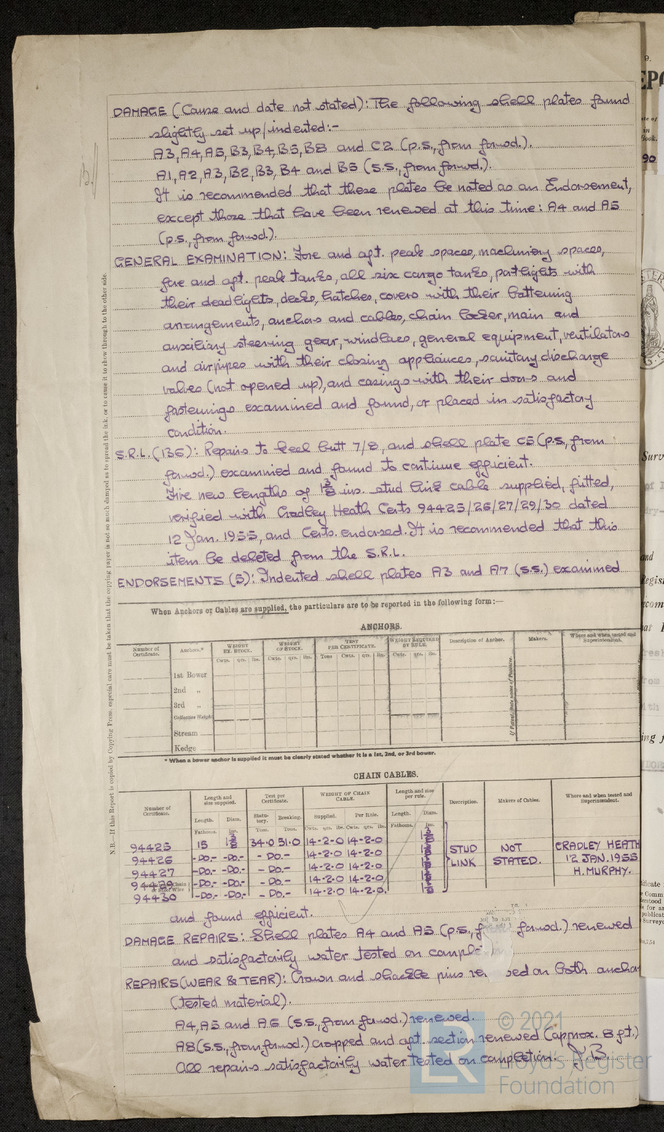 DAMAGE (Cause and date not stated): The following shell plates found
slightly set up/indented:-
A3, A4, A5, B3, B4, B5, B8 and C2 (p.s., from forwd.).
A1, A2, A3, B2, B3, B4 and B5 (s.s., from forwd.).
It is recommended that these plates be noted as an Endorsement,
except those that have been renewed at this time: A4 and A5
(p.s., from forwd.).
GENERAL EXAMINATION: Fore and aft. peak spaces, machinery spaces,
fore and aft. peak tanks, all six cargo tanks, portlights with
their deadlights, decks, hatches, covers with their battening
arrangements, anchors and cables, chain locker, main and
auxiliary steering gear, windlass, general equipment, ventilators
and airpipes with their closing appliances, sanitary discharge
valves (not opened up), and casings with their doors and
fastenings examined and found, or placed in satisfactory
condition.
S.R.L. (136): Repairs to keel butt 7/8, and shell plate C5 (p.s., from
forwd.) examined and found to continue efficient.
Five new lengths of ins. stud link cable supplied, fitted,
verified with Cradley Heath Certs 94425/26/27/29/30 dated
12 Jan. 1955, and Certs. endorsed. It is recommended that this
item be deleted from the S.R.L.
ENDORSEMENTS (5): Indented shell plates A3 and A7 (s.s.) examined
When Anchors or Cables are supplied, the particulars are to be reported in the following form:—
ANCHORS.
Number of Certificate. Anchors.* WEIGHT EX. STOCK. WEIGHT OF STOCK. TEST PER CERTIFICATE. WEIGHT REQUIRED BY RULE. Description of Anchor. Makers. Where and when tested and Superintendent.
Cwts. qrs. lbs. Cwts. qrs. lbs. Tons Cwts. qrs. lbs. Cwts. qrs. lbs.
1st Bower
2nd „
3rd „
Stream
Kedge
* When a bower anchor is supplied it must be clearly stated whether it is a 1st, 2nd, or 3rd bower.
CHAIN CABLES.
Number of Certificate. Length and size supplied. Test per Certificate. WEIGHT OF CHAIN CABLE. Length and size per rule. Description. Makers of Cables. Where and when tested and Superintendent.
Length. Diam. Statutory. Breaking. Supplied. Per Rule. Length. Diam.
Fathoms. Tons. Tons. Cwts. qrs. lbs. Cwts. qrs. lbs. Fathoms.
94425 15 34·0 51·0 14-2-0 14-2-0 STUD LINK NOT STATED. CRADLEY HEATH 12 JAN. 1955 H. MURPHY.
94426 -Do.- -Do.- -Do.- 14-2-0 14-2-0
94427 -Do.- -Do.- -Do.- 14-2-0 14-2-0
-Do.- -Do.- -Do.- 14-2-0 14-2-0
94430 -Do.- -Do.- -Do.- 14-2-0 14-2-0
and found efficient.
DAMAGE REPAIRS: Shell plates A4 and A5 (p.s., forwd.) renewed
and satisfactorily water tested on
REPAIRS (WEAR & TEAR): Crown and shackle pins on both
(tested material).
A4, A5 and A6 (s.s., from forwd.) renewed.
A8 (s.s., from forwd.) cropped and aft. section renewed (approx. 8 ft.)
All repairs satisfactorily water tested on completion.
N.B.—If this Report is copied by Copying Press, especial care must be taken that the copying paper is not so much damped as to spread the ink, or to cause it to show through to the other side.
LR © 2021
Lloyd's Register
Foundation